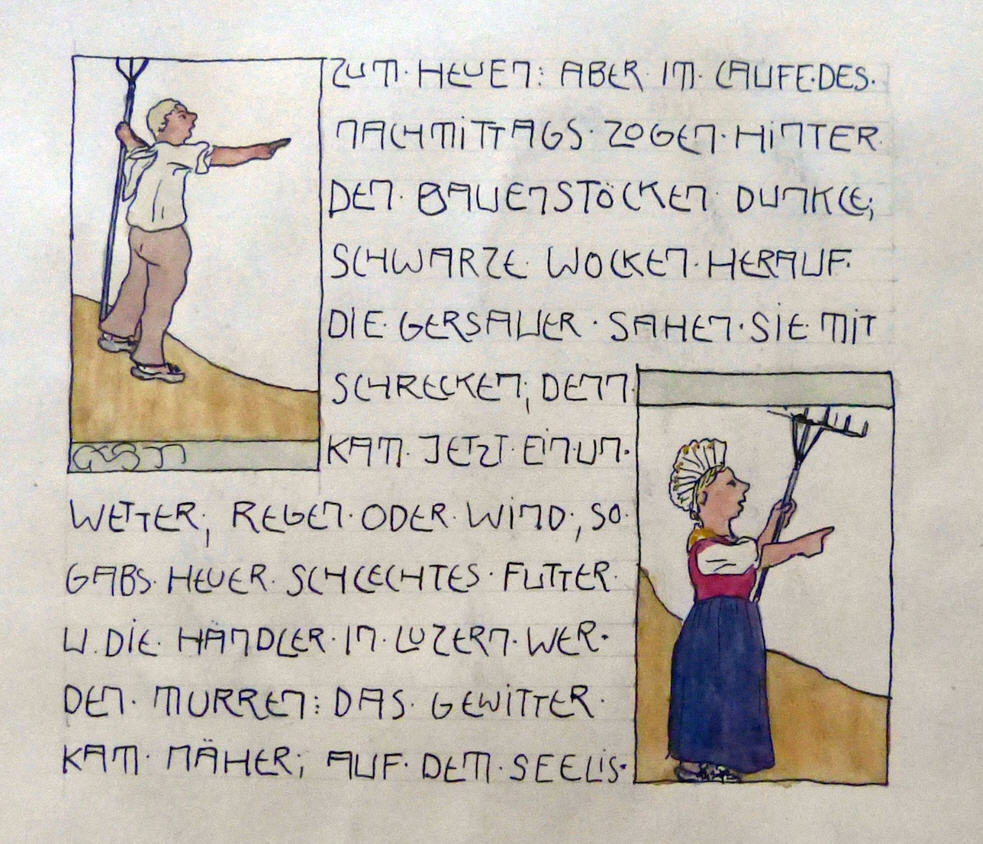 ZUM·HEUEN: ABER·IM·LAUFE·DES·
NACHMITTAGS·ZOGEN·HINTER·
DEN·BAUENSTÖCKEN·DUNKLE;
SCHWARZE·WOLKEN·HERAUF·
DIE·GERSAUER·SAHEN·SIE·MIT
SCHRECKEN; DENN·
KAM·JETZT·EIN UN·
WETTER; REGEN·ODER·WIND; SO·
GABS·HEUER·SCHLECHTES·FUTTER·
U.DIE·HÄNDLER·IN·LUZERN·WER·
DEN·MURREN: DAS·GEWITTER·
KAM·NÄHER; AUF·DEM·SEELIS·